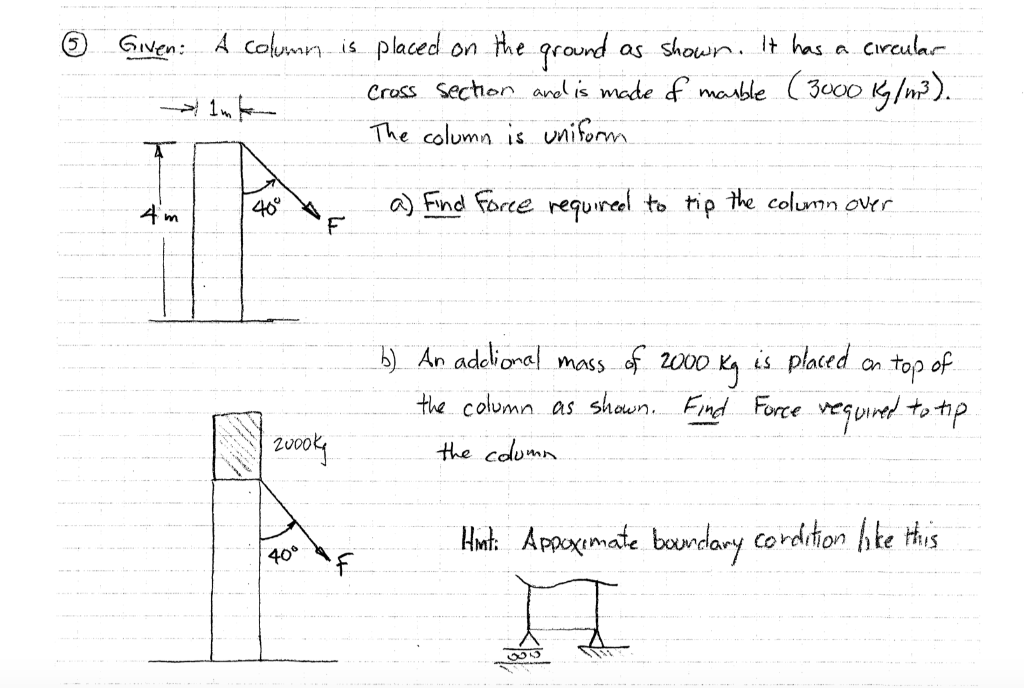 ⑤ Given: A column is placed on the ground as shown. It has a circular
cross section and is made of marble (3000 Kg/m³).
1m
The column is uniform
4 m
40°
F
a) Find Force required to tip the column over
b) An addional mass of 2000 Kg is placed on top of
the column as shown. Find Force required to tip
the column
2000Kg
40°
F
Hint: Appoximate boundary condition like this